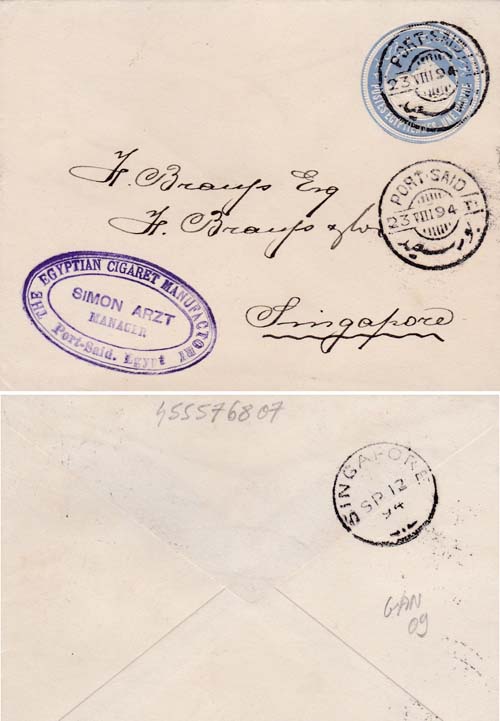 PORT-SAID
23 VIII 94
بورسعيد
POSTES EGYPTIENNES. UNE PIASTRE
PORT-SAID
23 VIII 94
بورسعيد
H. Brauss Esq
H. Brauss & Co
Singapore
THE EGYPTIAN CIGARET MANUFACTORY
SIMON ARZT
MANAGER
Port-Said. Egypt
455576807
SINGAPORE
SP 12
94
GAN
09